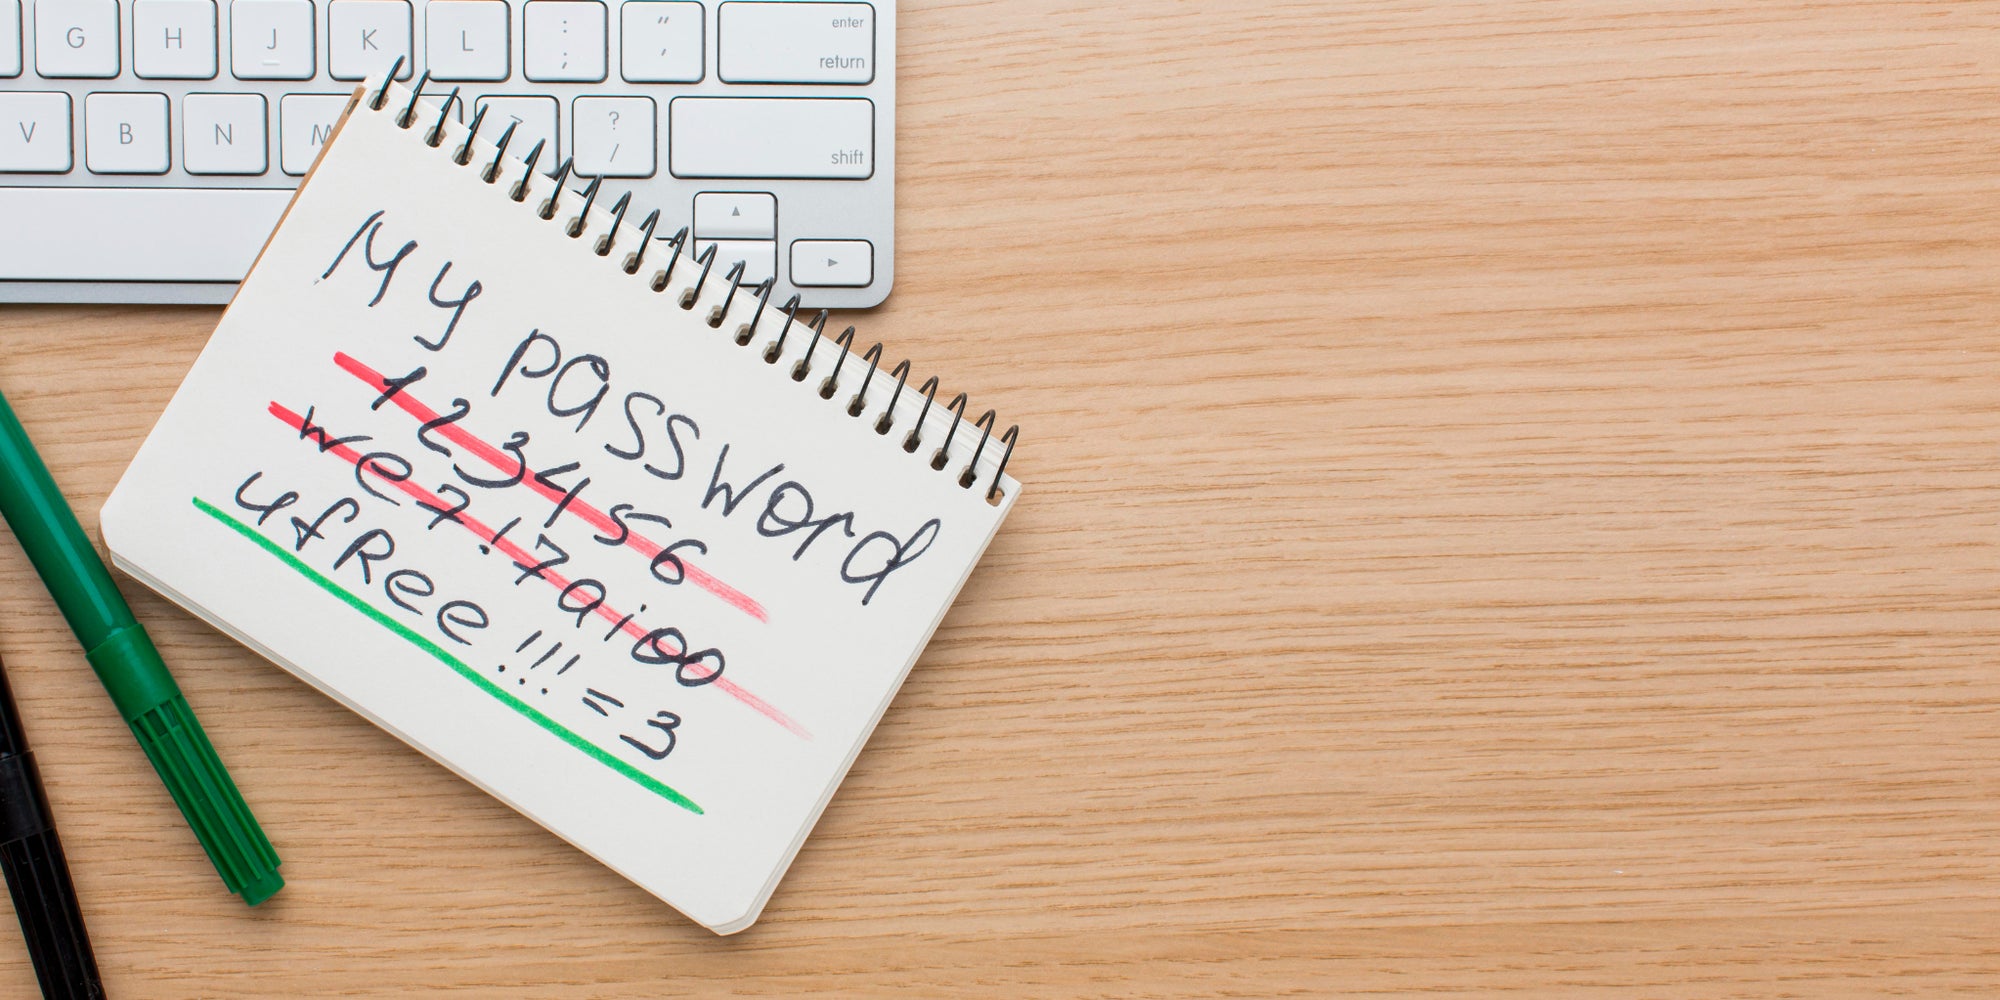 G H J K L : ; " , enter return
V B N M ? / shift
My password
123456
we7!7aioo
4fRee!!!=3